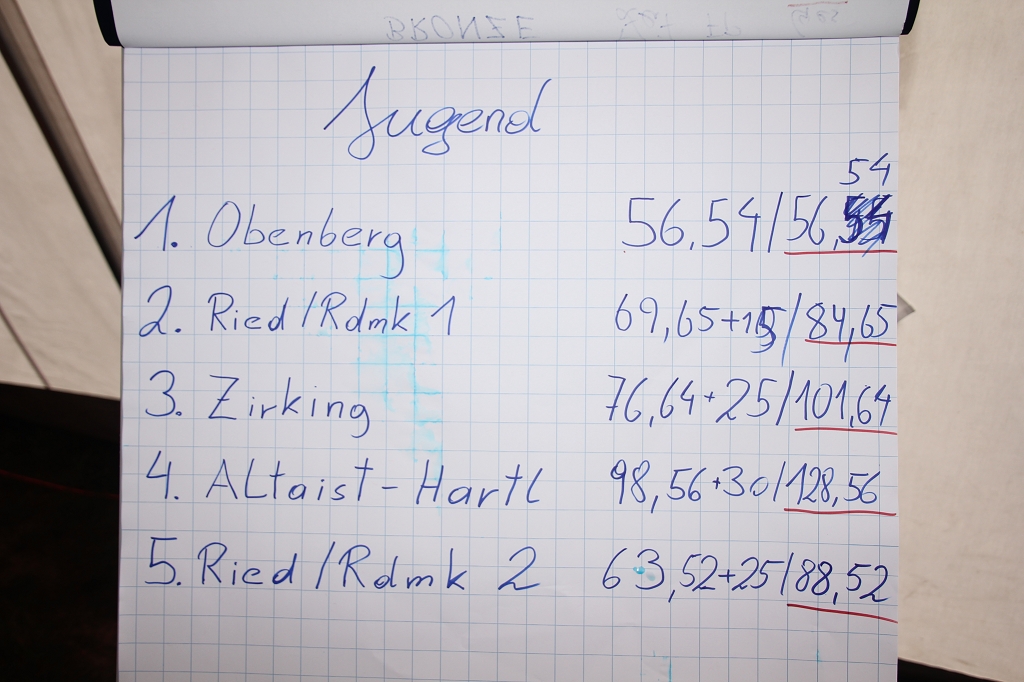 Jugend
54
1. Obenberg 56,54/56,
2. Ried/Rdmk 1 69,65+15/84,65
3. Zirking 76,64+25/101,64
4. ALtaist-Hartl 98,56+30/128,56
5. Ried/Rdmk 2 63,52+25/88,52